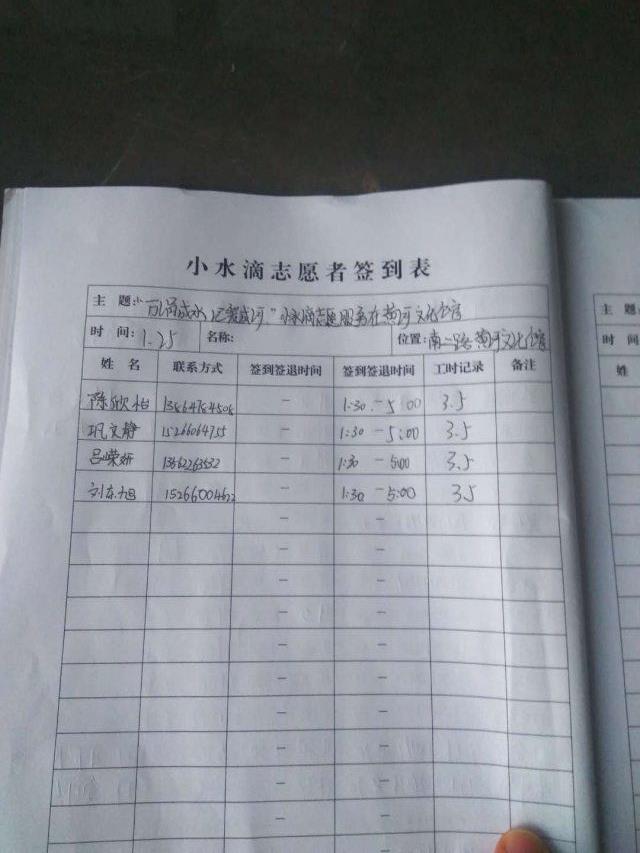 小水滴志愿者签到表
主 题：“百涓成水 汇聚成河”小水滴志愿服务在黄河文化馆
时 间：1.25 名称： 位置：南二路黄河文化馆
姓 名 联系方式 签到签退时间 签到签退时间 工时记录 备注
陈欣怡 13864784508 — 1:30 — 5:00 3.5
巩文静 15266064755 — 1:30 — 5:00 3.5
吕嵘妍 — 1:30 — 5:00 3.5
刘东旭 15266004622 — 1:30 — 5:00 3.5
主 题
时 间
姓